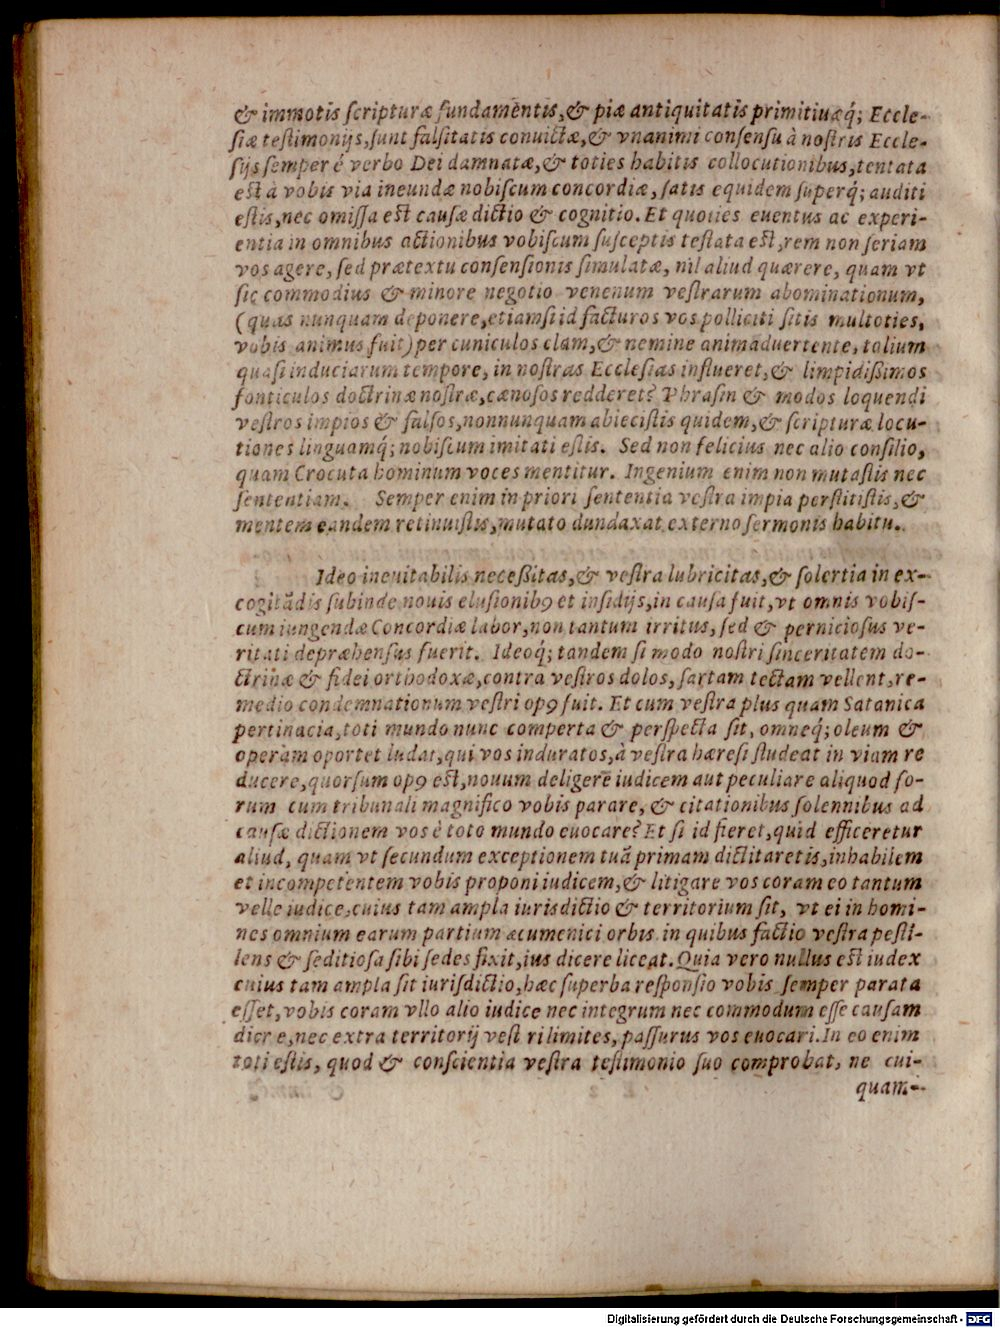 & immotis ſcripturæ fundamẽntis,& piæ antiquitatis primitiuæq́; Eccle-
ſiæ teſtimonijs,ſunt falſitatis conuictæ,& vnanimi conſenſu à noſtris Eccle-
ſijs ſemper é verbo Dei damnatæ,& toties habitis collocutionibus,tentata
eſt à vobis via ineundæ nobiſcum concordiæ, ſatis equidem ſuperq́; auditi
eſtis,nec omiſſa eſt cauſæ dictio & cognitio. Et quoties euentus ac experi-
entia in omnibus actionibus vobiſcum ſuſceptis teſtata eſt,rem non ſeriam
vos agere, ſed prætextu conſenſionis ſimulatæ, nil aliud quærere, quam vt
ſic commodius & minore negotio venenum veſtrarum abominationum,
(quas nunquam deponere,etiamſi id facturos vos polliciti ſitis multoties,
vobis animus fuit) per cuniculos clam,& nemine animaduertente, talium
quaſi induciarum tempore, in noſtras Eccleſias influeret,& limpidißimos
fonticulos doctrinæ noſtræ,cænoſos redderet? Phraſin & modos loquendi
veſtros impios & falſos,nonnunquam abieciſtis quidem,& ſcripturæ locu-
tiones linguamq́; nobiſcum imitati eſtis. Sed non felicius nec alio conſilio,
quam Crocuta hominum voces mentitur. Ingenium enim non mutaſtis nec
ſententiam. Semper enim in priori ſententia veſtra impia perſtitiſtis,&
mentem eandem retinuiſtis,mutato dundaxat externo ſermonis habitu.
Ideo ineuitabilis neceßitas,& veſtra lubricitas,& ſolertia in ex-
cogitãdis ſubinde nouis eluſionibꝰ et inſidijs,in cauſa fuit,vt omnis vobiſ-
cum iungendæ Concordiæ labor,non tantum irritus, ſed & pernicioſus ve-
ritati depræhenſus fuerit. Ideoq́; tandem ſi modo noſtri ſinceritatem do-
ctrinæ & fidei orthodoxæ,contra veſtros dolos, ſartam tectam vellent,re-
medio condemnationum veſtri opꝰ fuit. Et cum veſtra plus quam Satanica
pertinacia,toti mundo nunc comperta & perſpecta ſit, omneq́; oleum &
operam oportet ludat,qui vos induratos,à veſtra hæreſi ſtudeat in viam re
ducere,quorſum opꝰ eſt,nouum deligerẽ iudicem aut peculiare aliquod fo-
rum cum tribunali magnifico vobis parare, & citationibus ſolennibus ad
cauſæ dictionem vos è toto mundo euocare? Et ſi id fieret,quid efficeretur
aliud, quam vt ſecundum exceptionem tuã primam dictitaretis,inhabilem
et incompetentem vobis proponi iudicem,& litigare vos coram eo tantum
velle iudice,cuius tam ampla iurisdictio & territorium ſit, vt ei in homi-
nes omnium earum partium æcumenici orbis in quibus factio veſtra peſti-
lens & ſeditioſa ſibi ſedes fixit,ius dicere liceat. Quia vero nullus eſt iudex
cuius tam ampla ſit iuriſdictio,hæc ſuperba reſponſio vobis ſemper parata
eſſet,vobis coram vllo alio iudice nec integrum nec commodum eſſe cauſam
dicr e,nec extra territorij veſt ri limites, paſſurus vos euocari. In eo enim
toti eſtis, quod & conſcientia veſtra teſtimonio ſuo comprobat, ne cui-
quam-
Digitalisierung gefördert durch die Deutsche Forschungsgemeinschaft - DFG